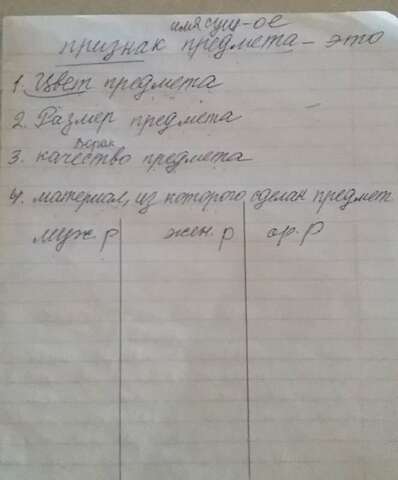 имя сущ-ое
признак предмета - это
1. Цвет предмета
2. Размер предмета
3. качество предмета
4. материал, из которого сделан предмет
муж. р жен. р ср. р